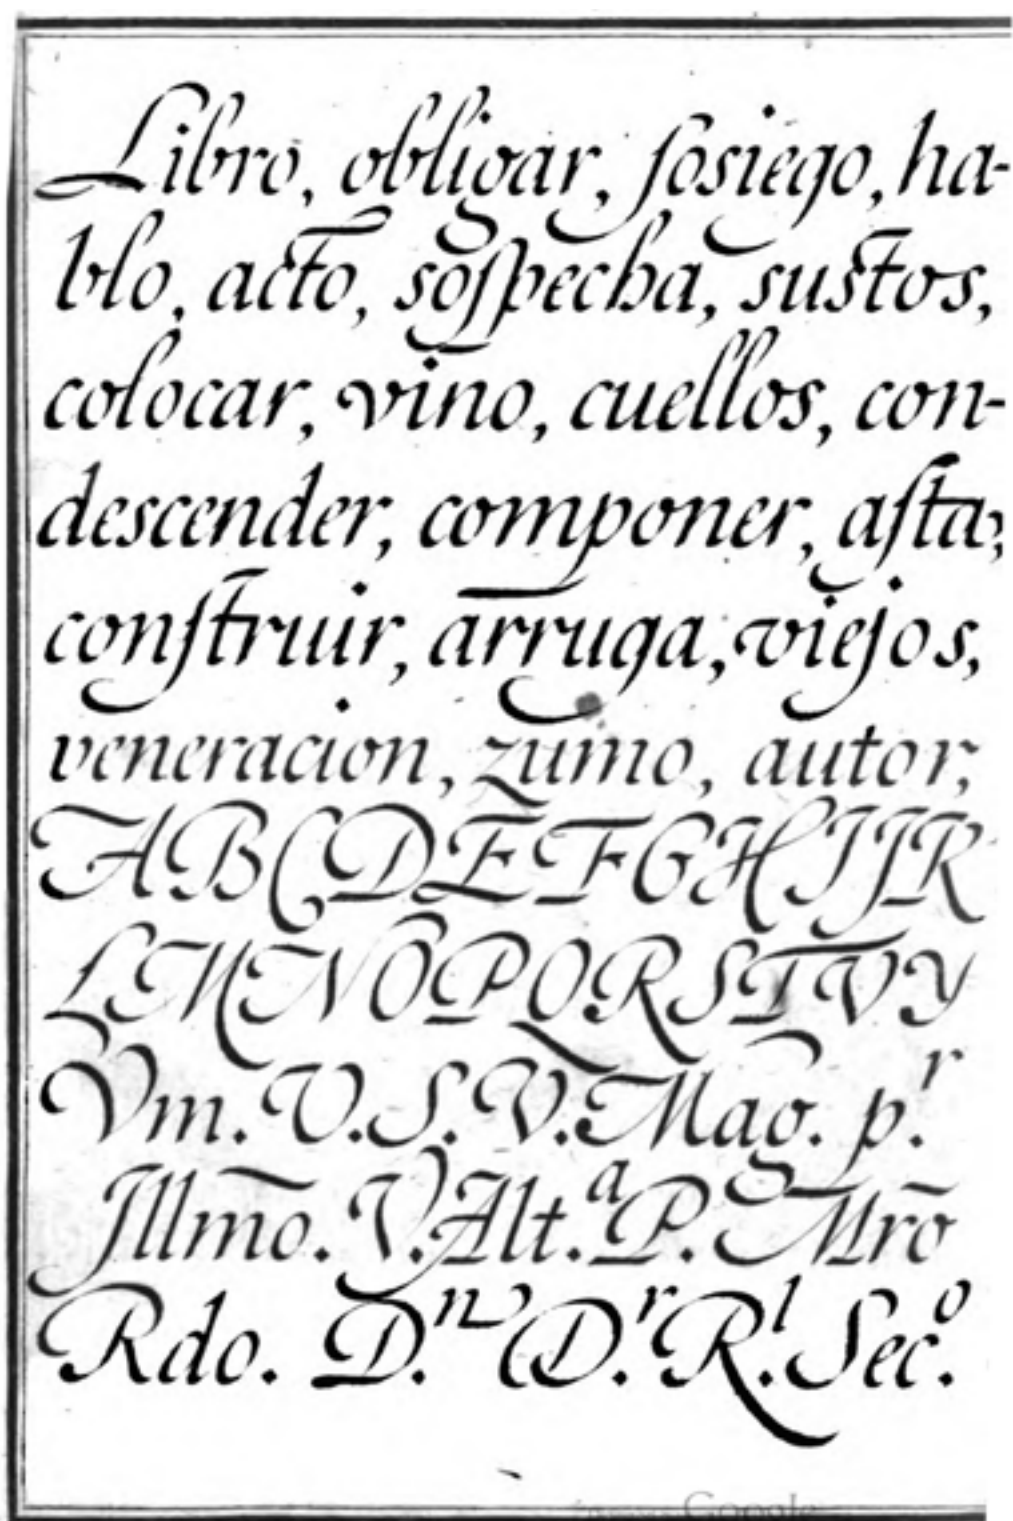 Libro, obligar, ſosiego, ha-
blo, acto, soſpecha, sustos,
colocar, vino, cuellos, con-
descender, componer, aſta,
conſtruir, arruga, viejos,
veneracion, zumo, autor,
A B C D E F G H I J K
L M N O P Q R S T V Y
Vm. V. S. V. Mag. p.ʳ
Illm̄o. V. Alt.ᵃ P. Mr̄o
Rdo. D.ⁿ D.ʳ R.ˡ Sec.ᵒ
Google